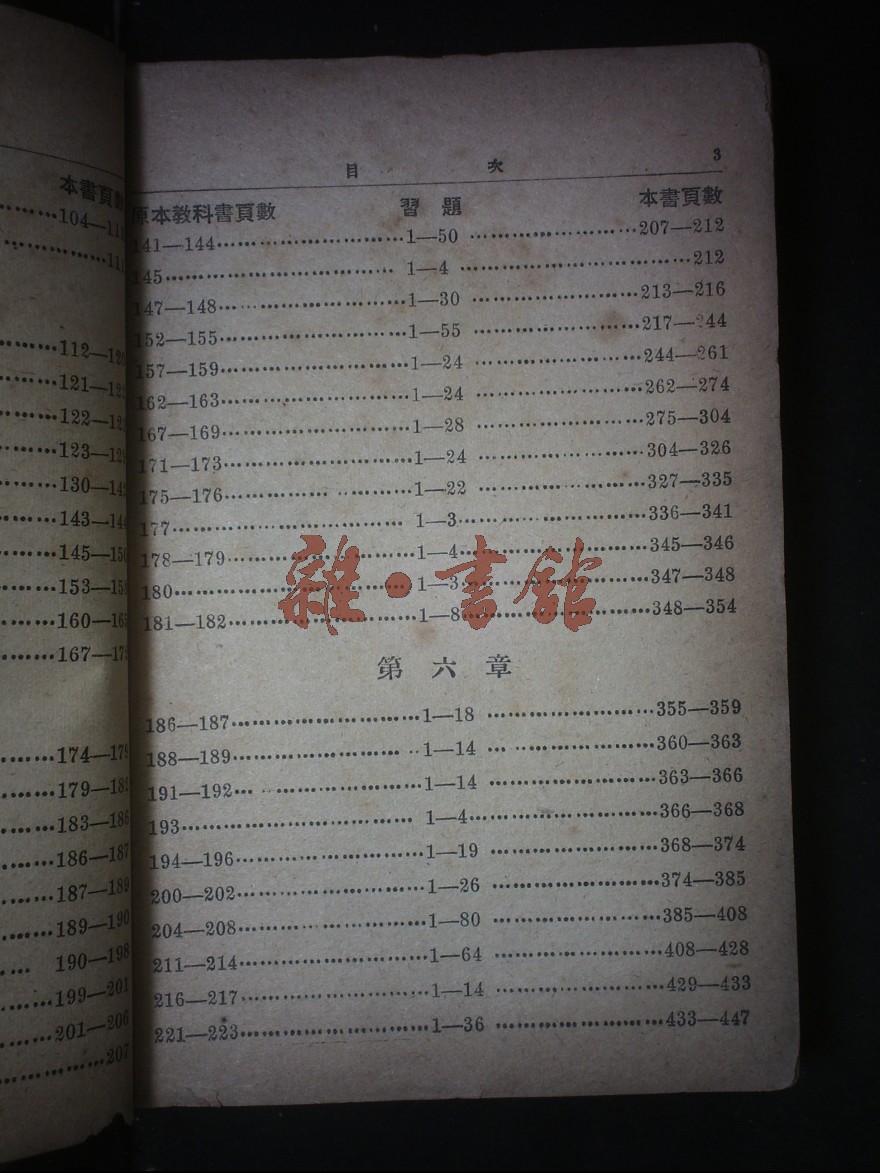 本書頁數
104—11
11
112—120
121—12
122—12
123—12
130—142
143—144
145—150
153—159
160—165
167—17
174—179
179—182
183—186
186—187
187—189
189—190
190—198
199—201
201—206
207
目 次 3
原本教科書頁數 習題 本書頁數
141—144 1—50 207—212
145 1—4 212
147—148 1—30 213—216
152—155 1—55 217—244
157—159 1—24 244—261
162—163 1—24 262—274
167—169 1—28 275—304
171—173 1—24 304—326
175—176 1—22 327—335
177 1—3 336—341
178—179 1—4 345—346
180 1—3 347—348
181—182 1—8 348—354
雜·書館
第六章
186—187 1—18 355—359
188—189 1—14 360—363
191—192 1—14 363—366
193 1—4 366—368
194—196 1—19 368—374
200—202 1—26 374—385
204—208 1—80 385—408
211—214 1—64 408—428
216—217 1—14 429—433
221—223 1—36 433—447